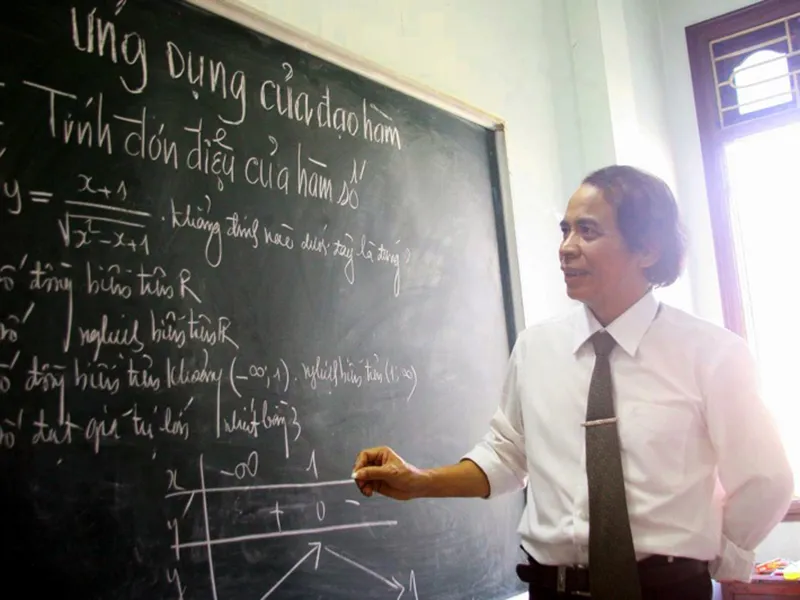 Ứng dụng của đạo hàm
Tính đơn điệu của hàm số
y = x+1 / √x²-x+1 . Khẳng định nào dưới đây là đúng?
số đồng biến trên R
số nghịch biến trên R
số đồng biến trên khoảng (-∞; 1). nghịch biến trên (1; ∞)
số đạt giá trị lớn nhất bằng 3
x -∞ 1
y' + 0 -
y 1